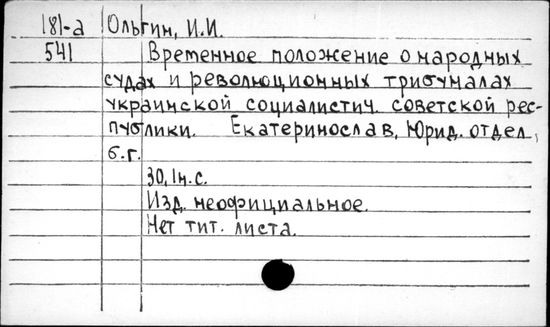 181-а Ольгин, И.И.
541 Временное положение о народных
судах и революционных трибуналах
украинской социалистич. советской рес-
публики. Екатеринослав, Юрид. отдел,
б.г.
30, 1н.с.
Изд. неофициальное.
Нет тит. листа.